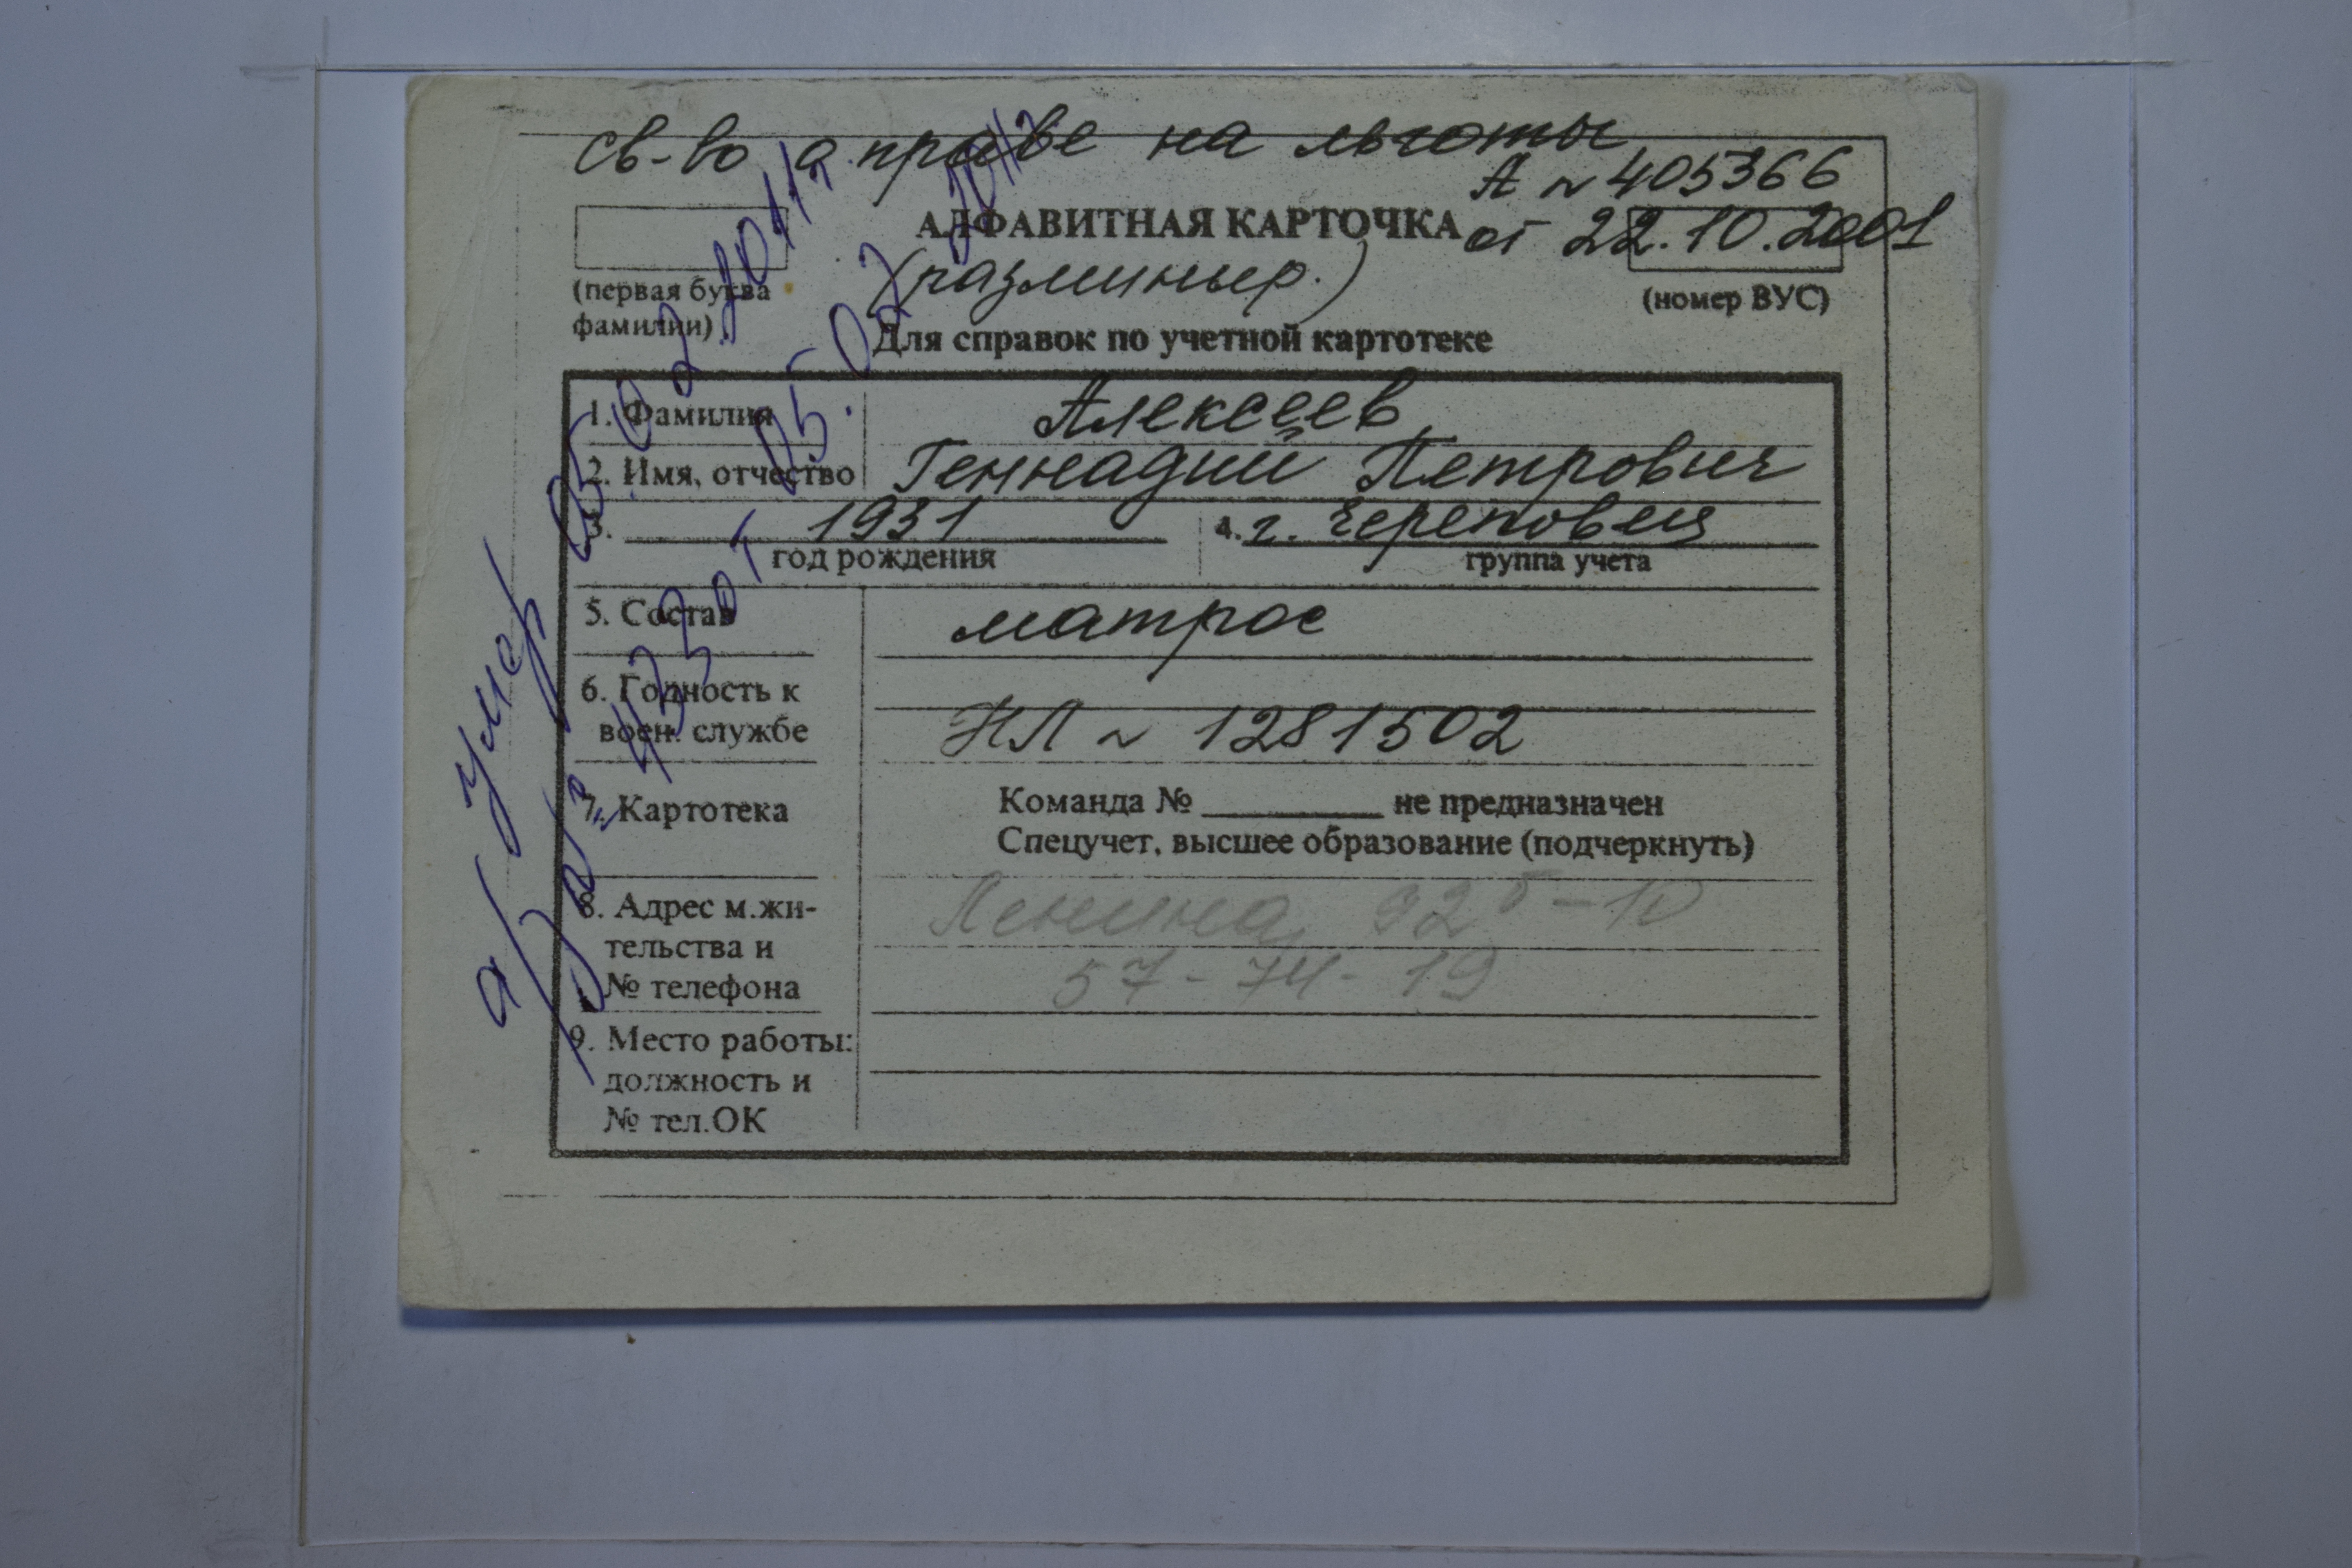 св-во о праве на льготы
А № 405366
АЛФАВИТНАЯ КАРТОЧКА от 22.10.2001
(первая буква фамилии)
(разминир.)
(номер ВУС)
Для справок по учетной картотеке
1. Фамилия Алексеев
2. Имя, отчество Геннадий Петрович
3. 1931 4. г. Череповец
год рождения группа учета
5. Состав матрос
6. Годность к
воен. службе НЛ № 1281502
7. Картотека Команда № ______ не предназначен
Спецучет, высшее образование (подчеркнуть)
8. Адрес м.жи- Ленина 92 б - 10
тельства и 57-74-19
№ телефона
9. Место работы:
должность и
№ тел.ОК
умер 05.02.2011г.
а/з № 435 от 05.02.2011г.